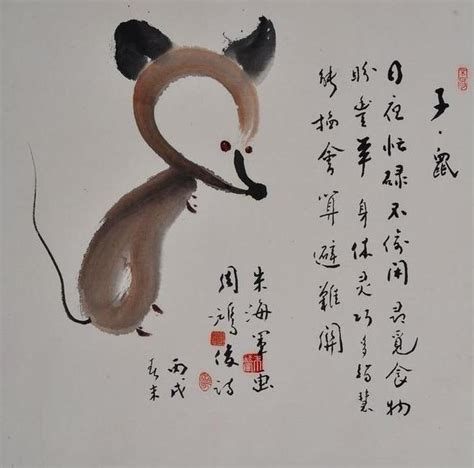 子·鼠
日夜忙碌不偷闲寻觅食物
盼豐年身体灵巧多慧
能掐會算避難關
朱海军画
周鴻俊诗
丙戌
春末